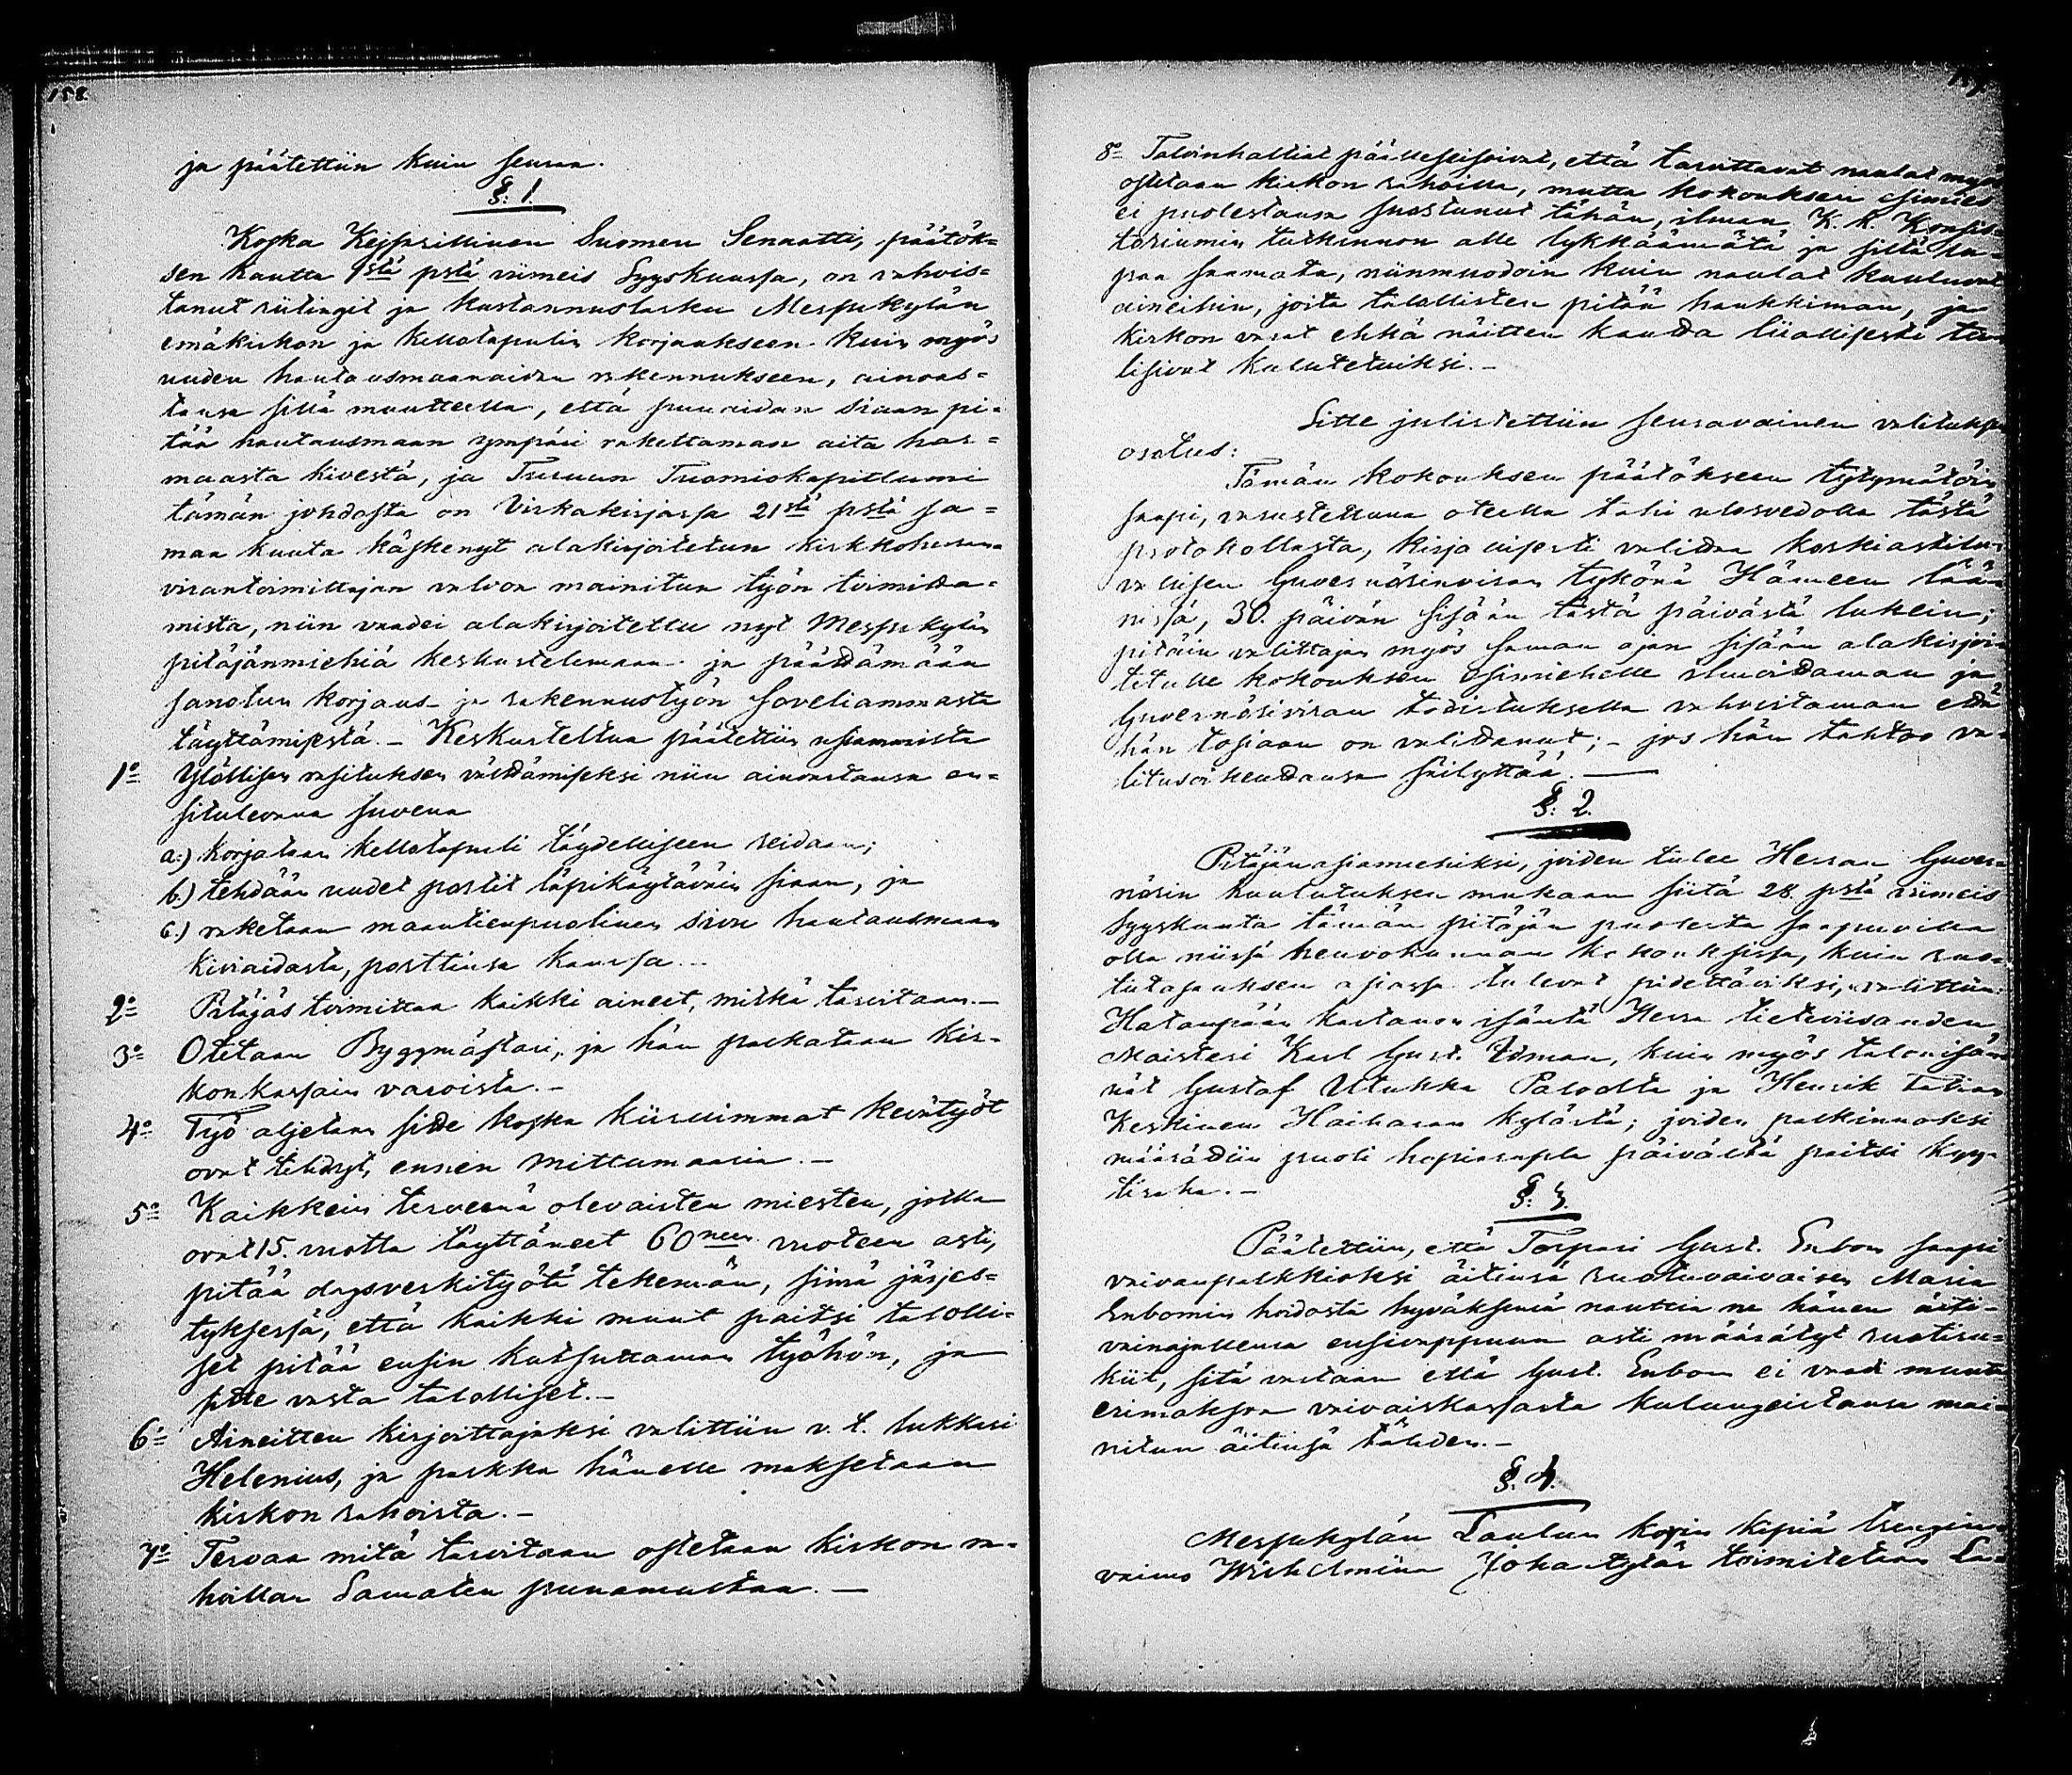 158.
ja päätettiin kuin seuraa.
§. 1.
Koska Kejsarillinen Suomen Senaatti, päätök=
sen kautta 1stä pstä viimeis Syyskuussa, on vahvis=
tanut riitingit ja kustannuslasku Messukylän
emäkirkon ja kellotapulin korjaukseen kuin myös
uuden hautausmaanaidan rakennukseen, ainoas=
tansa sillä muutteella, että puuaidan siaan pi=
tää hautausmaan ympäri rakettaman aita har=
maasta kivestä, ja Turuun Tuomiokapitlumi
tämän johdosta on Virkakirjassa 21stä pstä sa=
maa kuuta käskenyt alakirjoitetun kirkkoherran=
virantoimittajan valvoa mainitun työn toimitta=
mista, niin vaadei alakirjoitettu nyt Messukylän
pitäjänmiehiä keskustelemaan ja päättämään
sanotun korjaus- ja rakennustyön soveliammasta
täyttämisestä. – Keskusteltua päätettiin
1o Ylöllisen rasituksen välttämiseksi niin ainoastansa en=
situlevana suvena
a.) korjataan kellotapuli täydelliseen reidaan;
b.) tehdään uudet portit läpikäytäväin siaan, ja
c.) raketaan maantienpuolinen sivu hautausmaan
kiviaidasta, porttiinsa kanssa. –
2o Pitäjäs toimittaa kaikki aineet, mitkä tarvitaan. –
3o Otetaan Byggmästari, ja hän palkataan kir=
konkassain varoista. –
4o Työ aljetaan sitte koska kiiruimmat kevätyöt
ovat tehdyt, ennen mittumaaria. –
5o Kaikkein terveenä olevaisten miesten, jotka
ovat 15. vuotta täyttäneet 60neen vuoteen asti,
pitää dagsverkityötä tekemän, siinä järjes=
tyksessä, että kaikki muut paitsi talolli=
set pitää ensin kutsuttaman työhön, ja
sitte vasta talolliset. –
6o Aineitten kirjoittajaksi valittiin v. t. lukkari
Helenius, ja palkka hänelle maksetaan
kirkon rahoista. –
7o Tervaa mitä tarvitaan ostetaan kirkon ra=
hoillan Samaten punamultaa. –
8o Talonhaltiat päälleseisoivat, että tarvittavat naulat myös
ostetaan kirkon rahoilla, mutta kokouksen esimies
ei puolestansa suostunut tähän, ilman K. K. Konsis=
toriumin tutkinnon alle lykkäämätä ja siltä lu=
paa saamata, niinmuodoin kuin naulat kuuluvat
aineihin, joita talollisten pitää hankkiman, ja
kirkon varat ehkä näitten kautta liiallisesti tu=
lisivat kulutetuiksi. –
Sitte julistettiin seuraavainen valituksen
osatus:
Tämän kokouksen päätökseen tytymätöin
saapi, varustettuna oteella tahi ulosvedolla tästä
protokollasta, kirjallisesti valittaa korkiastilu=
vallisen Guvernörinviran tykönä Hämeen lää=
nissä, 30. päivän sisään tästä päivästä lukein;
pitäin valittajan myös saman ajan sisään alakirjoi=
tetulle kokouksen esimiehelle ilmoittaman ja
Guvernörsviran todistuksella vahvistaman että
hän tosiaan on valittanut; – jos hän tahtoo va=
litusoikeuttansa säilyttää. –
§. 2.
Pitäjänasiamiehiksi, joiden tulee Herran Guver=
nörin kuulutuksen mukaan siitä 28. pstä viimeis
Syyskuuta tämän pitäjän puolesta saapuvilla
olla niissä neuvokunnan kokouksissa, kuin ruo=
tutajauksen asiassa tulevat pidettäviksi, valittiin:
Hatanpään kartanon isäntä Herra tieteviisauden
Maisteri Karl Gust. Idman, kuin myös talonisän=
nät Gustaf Utukka Palolta ja Henrik
Keskinen Haiharan kylästä; joiden palkinnoksi
määrättiin puoli hopiarupla päivältä paitsi kyy=
tiraha. –
§. 3.
Päätettiin, että Torpari Gust. Enbom saapi
vaivanpalkkioksi äitinsä ruotuvaivaisen Maria
Enbomin hoidosta hyväksensä nauttia ne hänen äiti=
vainajallensa ensivappuun asti määrätyt ruotiru=
kiit, sitä vastaan että Gust. Enbom ei vaadi muuta
erimaksoa vaivaiskassasta kulungeistansa mai=
nitun äitinsä tähden. –
§. 4.
Messukylän Laulun kopin kipiä
vaimo Wilhelmiina Johantytär toimitetaan La=